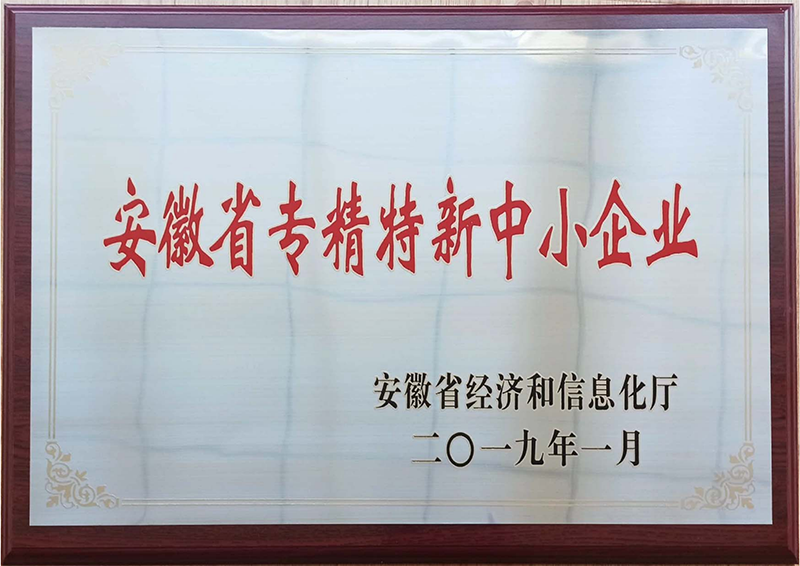 安徽省专精特新中小企业
安徽省经济和信息化厅
二〇一九年一月